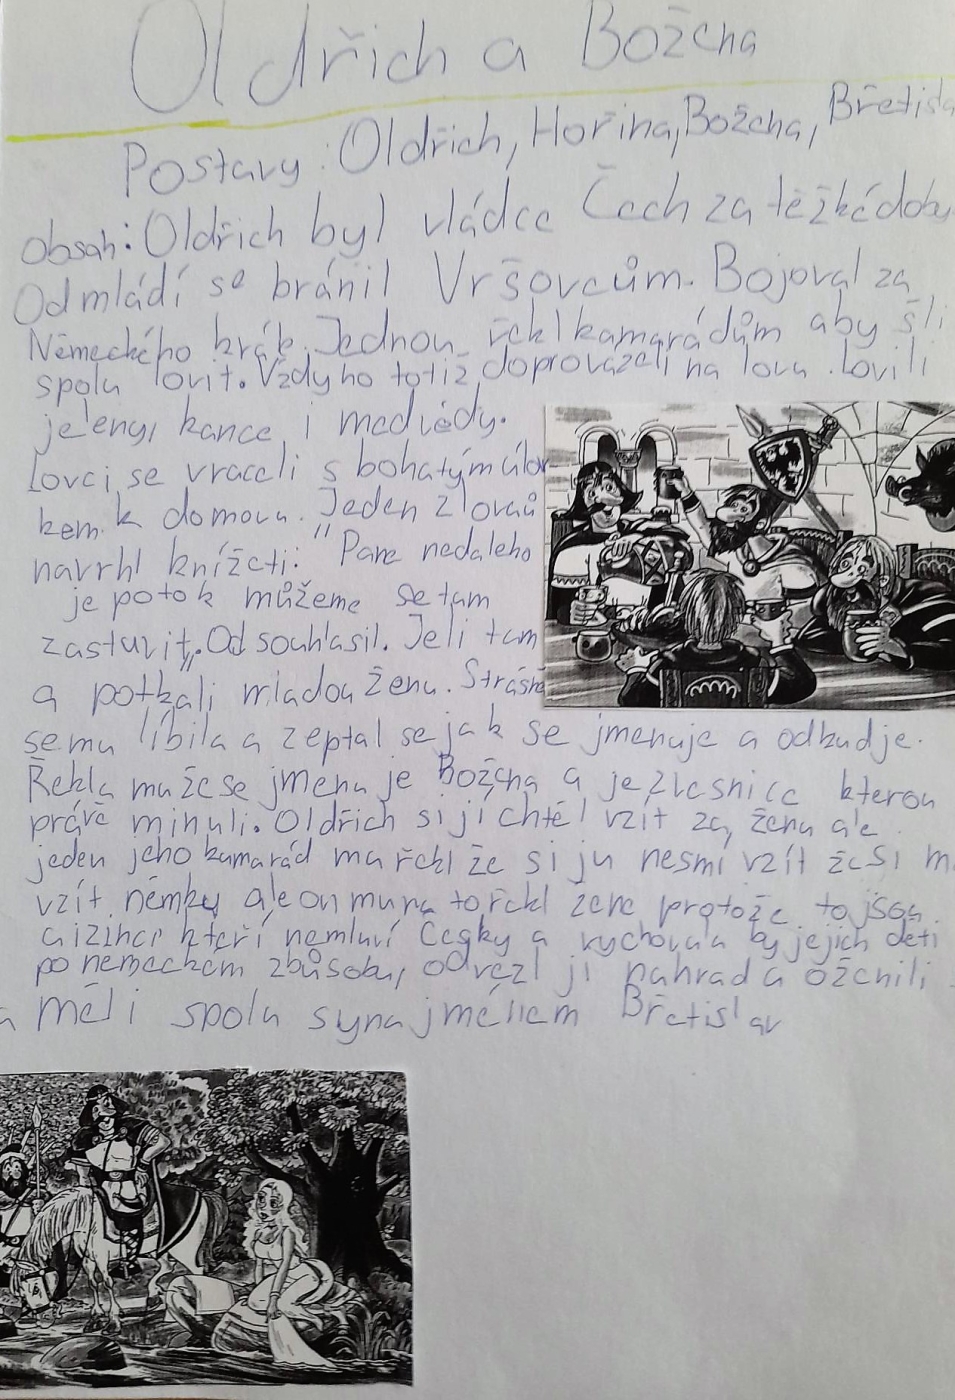 Oldřich a Božena
Postavy: Oldřich, Hořina, Božena, Břetisla
obsah: Oldřich byl vládce Čech za těžké doby
Od mládí se bránil Vršovcům. Bojoval za
Německého krák. Jednou řekl kamarádům aby šli
spolu lovit. Vždy ho totiž doprovázeli na lovu. Lovili
jeleny, kance i medvědy.
Lovci se vraceli s bohatým úlov
kem k domovu. Jeden z lovců
navrhl knížeti: "Pane nedaleho
je potok můžeme se tam
zastavit". Odsouhlasil. Jeli tam
a potkali mladou ženu. Strašně
se mu líbila a zeptal se jak se jmenuje a odkud je.
Řekla mu že se jmenuje Božena a je z vesnice kterou
právě minuli. Oldřich si jí chtěl vzít za ženu ale
jeden jeho kamarád mu řekl že si ju nesmí vzít že si m
vzít němku ale on mu na to řekl že ne protože to jsou
cizinci kteří nemluví česky a vychovala by jejich děti
po nemeckém způsobu, odvezl ji na hrad a oženili
a měli spolu syna jménem Břetislav